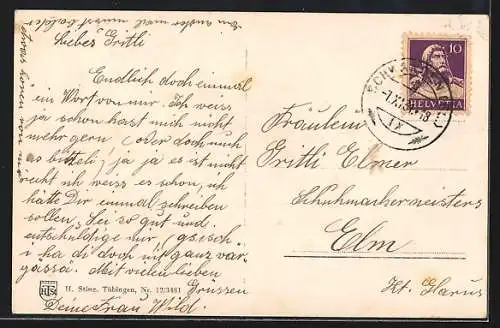 Liebes Gritli
Endlich doch einmal
ein Wort von mir. Ich weiss
ja schon hast mich nicht
mehr gern, (oder doch nuch
as bitteli, ja ja es ist nicht
recht ich weiss es schon, ich
hätte Dir einmal schreiben
sollen. Sei so gut und
entschuldige mir (gsisch
i ha di doch nit ganz var-
gassa. Mit vielen lieben
Grüssen
Deine Frau Wild.
Ein ander mal musst balder
etwas hören von mir
H. Stinc. Tübingen, Nr. 12/3461
10
HELVETIA
Fräulein
Gritli Elmer
Schuhmachermeisters
Elm
Kt. Glarus